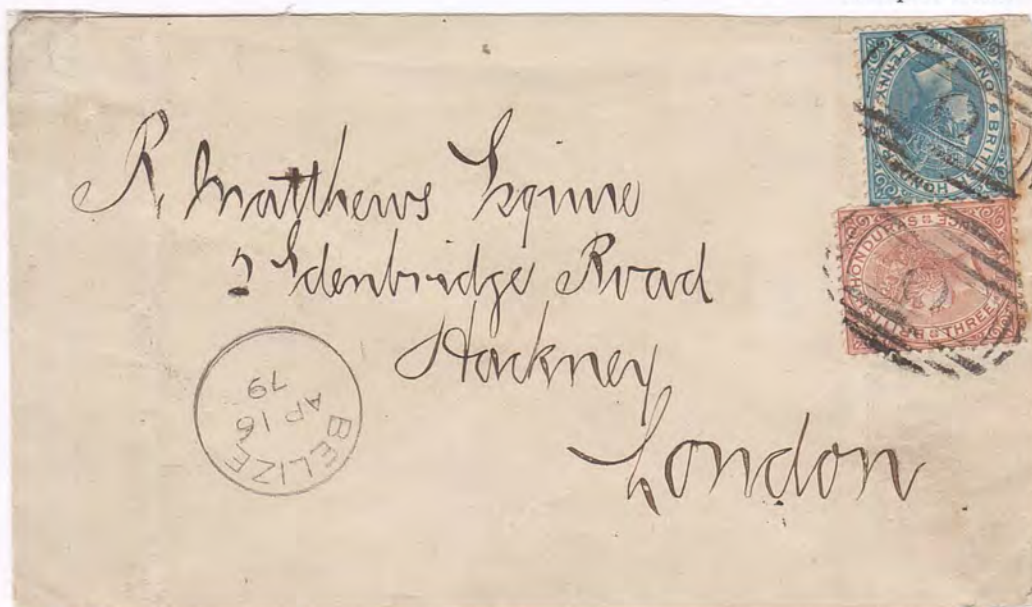 R. Matthews Esquire
2 Edenbridge Road
Hackney
London
BELIZE
AP 16
79
ONE PENNY BRITISH HONDURAS
BRITISH HONDURAS THREE PENCE